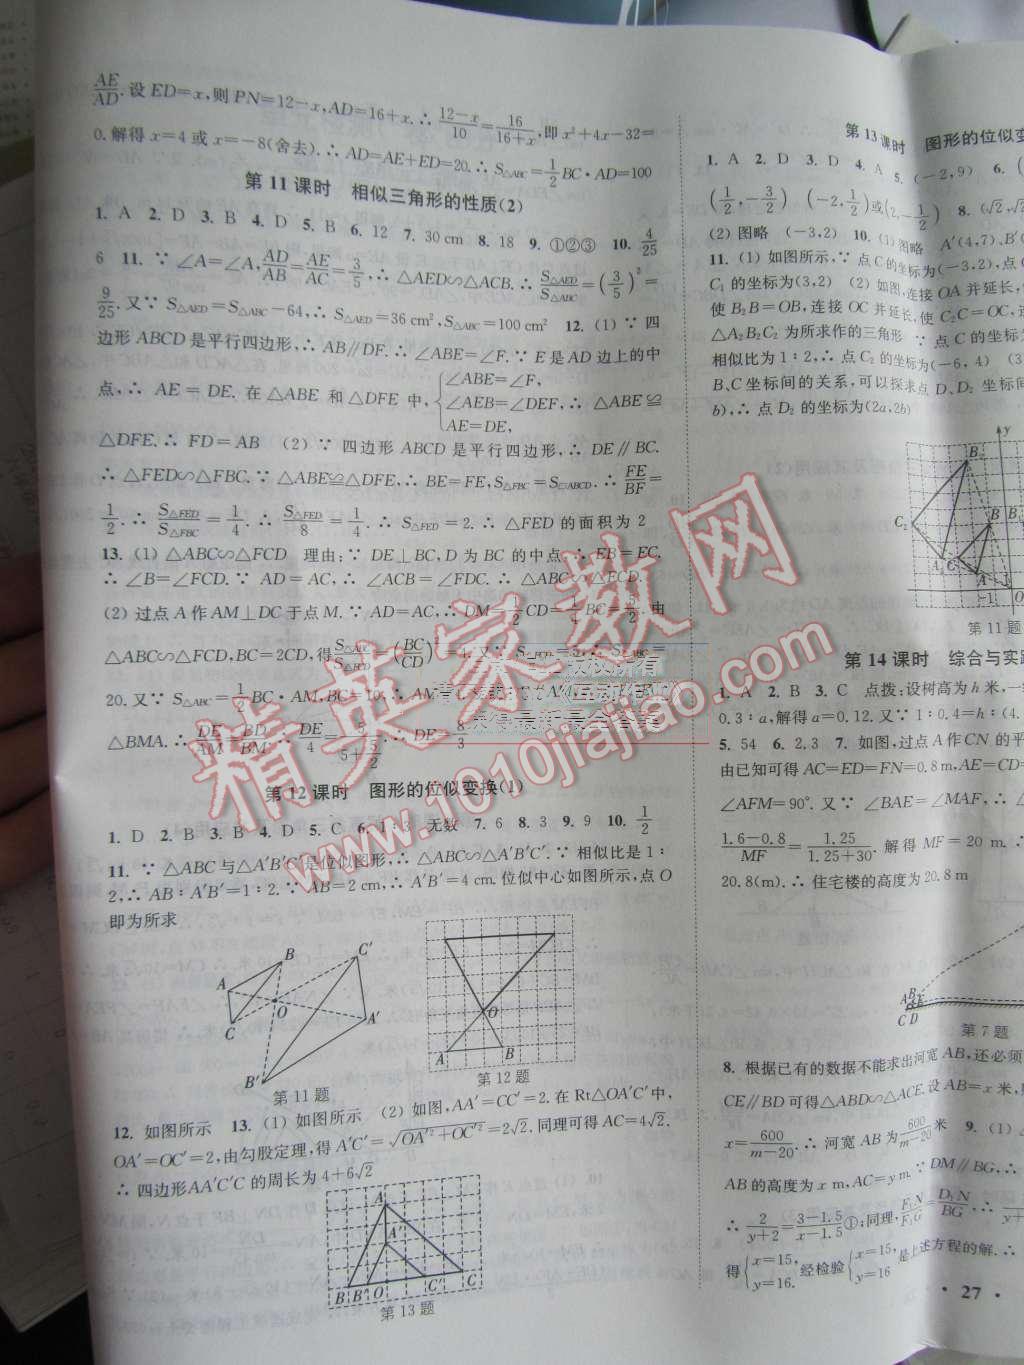 AE/AD. 设 ED=x,则 PN=12-x,AD=16+x.∴ (12-x)/10=16/(16+x),即 x²+4x-32=
0.解得 x=4 或 x=-8(舍去).∴ AD=AE+ED=20.∴ S△ABC=1/2 BC·AD=100
第 11 课时 相似三角形的性质(2)
1. A 2. D 3. B 4. D 5. B 6. 12 7. 30 cm 8. 18 9. ①②③ 10. 4/25
6 11. ∵ ∠A=∠A,AD/AB=AE/AC=3/5,∴ △AED∽△ACB.∴ S△AED/S△ABC=(3/5)²=
9/25.又∵ S△AED=S△ABC-64,∴ S△AED=36 cm²,S△ABC=100 cm² 12. (1) ∵ 四
边形 ABCD 是平行四边形,∴ AB∥DF.∴ ∠ABE=∠F.∵ E 是 AD 边上的中
点,∴ AE=DE. 在 △ABE 和 △DFE 中,{∠ABE=∠F, ∠AEB=∠DEF, AE=DE, ∴ △ABE≌
△DFE.∴ FD=AB (2) ∵ 四边形 ABCD 是平行四边形,∴ DE∥BC.
∴ △FED∽△FBC.∵ △ABE≌△DFE,∴ BE=FE,S△FBC=S▱ABCD.∴ FE/BF=
1/2.∴ S△FED/S△FBC=1/4.∴ S△FED/8=1/4.∴ S△FED=2.∴ △FED 的面积为 2
13. (1) △ABC∽△FCD 理由:∵ DE⊥BC,D 为 BC 的中点,∴ EB=EC.
∴ ∠B=∠FCD.∵ AD=AC,∴ ∠ACB=∠FDC.∴ △ABC∽△FCD.
(2) 过点 A 作 AM⊥DC 于点 M.∵ AD=AC,∴ DM=1/2 CD=1/4 BC=5/2.由
△ABC∽△FCD,BC=2CD,得 S△ABC/S△FCD=(BC/CD)²=4.又∵ S△FCD=5,∴ S△ABC=
20.又∵ S△ABC=1/2 BC·AM,BC=10,∴
△BMA.∴ DE/AM=BD/BM.∴ DE/4=5/(5+5/2).∴ DE=8/3
第 12 课时 图形的位似变换(1)
1. D 2. B 3. B 4. D 5. C 6. 1:3 无数 7. 6 8. 3 9. 9 10. 1/2
11. ∵ △ABC 与 △A′B′C′ 是位似图形,∴ △ABC∽△A′B′C′.∵ 相似比是 1:
2,∴ AB:A′B′=1:2.∵ AB=2 cm,∴ A′B′=4 cm.位似中心如图所示,点 O
即为所求
A B C O A′ B′ C′
第 11 题
A B O
第 12 题
12. 如图所示 13. (1) 如图所示 (2) 如图,AA′=CC′=2.在 Rt△OA′C′中,
OA′=OC′=2,由勾股定理,得 A′C′=√(OA′²+OC′²)=2√2.同理可得 AC=4√2.
∴ 四边形 AA′C′C 的周长为 4+6√2
A A′ B B′ O C′ C
第 13 题
第 13 课时 图形的位似变
1. A 2. D 3. D 4. A 5. (-2,9) 6.
(1/2,-3/2) (-2,1/2)或(2,-1/2) 8. (√2,√2
(2) 图略 (-3,2) 10. (1) 图略 A′(4,7)、B′(
11. (1) 如图所示.∵ 点 C 的坐标为(-3,2),点 C
C₁ 的坐标为(3,2) (2) 如图,连接 OA 并延长,
使 B₂B=OB,连接 OC 并延长,使 C₂C=OC,
△A₂B₂C₂ 为所求作的三角形 ∵ 点 C 的坐标
相似比为 1:2,∴ 点 C₂ 的坐标为(-6,4) (3)
B、C 坐标间的关系,可以探求点 D、D₂ 坐标间
b),∴ 点 D₂ 的坐标为(2a,2b)
y B₂ B C₂ A₂ C A -1 O
第 11 题
第 14 课时 综合与实践
1. A 2. B 3. C 点拨:设树高为 h 米,一
0.3:a,解得 a=0.12.又∵ 1:0.4=h:(4.
5. 54 6. 2.3 7. 如图,过点 A 作 CN 的平
由已知可得 AC=ED=FN=0.8 m,AE=CD=
∠AFM=90°. 又∵ ∠BAE=∠MAF,∴ △
(1.6-0.8)/MF=1.25/(1.25+30). 解得 MF=20 m.
20.8(m).∴ 住宅楼的高度为 20.8 m
A B E C D
第 7 题
8. 根据已有的数据不能求出河宽 AB,还必须
CE∥BD 可得△ABD∽△ACE.设 AB=x 米,
x=600/(m-20).∴ 河宽 AB 为 600/(m-20) 米 9. (1)
AB 的高度为 x m,AC=y m.∵ DM∥BG,∴
∴ 2/(y+2)=(3-1.5)/(x-1.5)①;同理,F₁N/F₁G=D₁N/BG,∴
得{x=15, y=16. 经检验{x=15, y=16 是上述方程的解.∴
· 27 ·
精英家教网
www.1010jiajiao.com